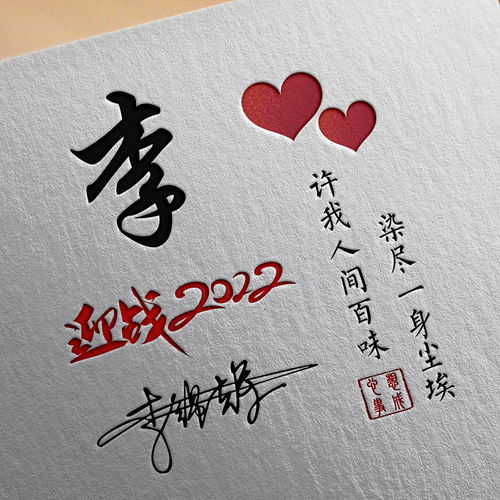 李
迎战2022
染尽一身尘埃
许我人间百味
心想事成